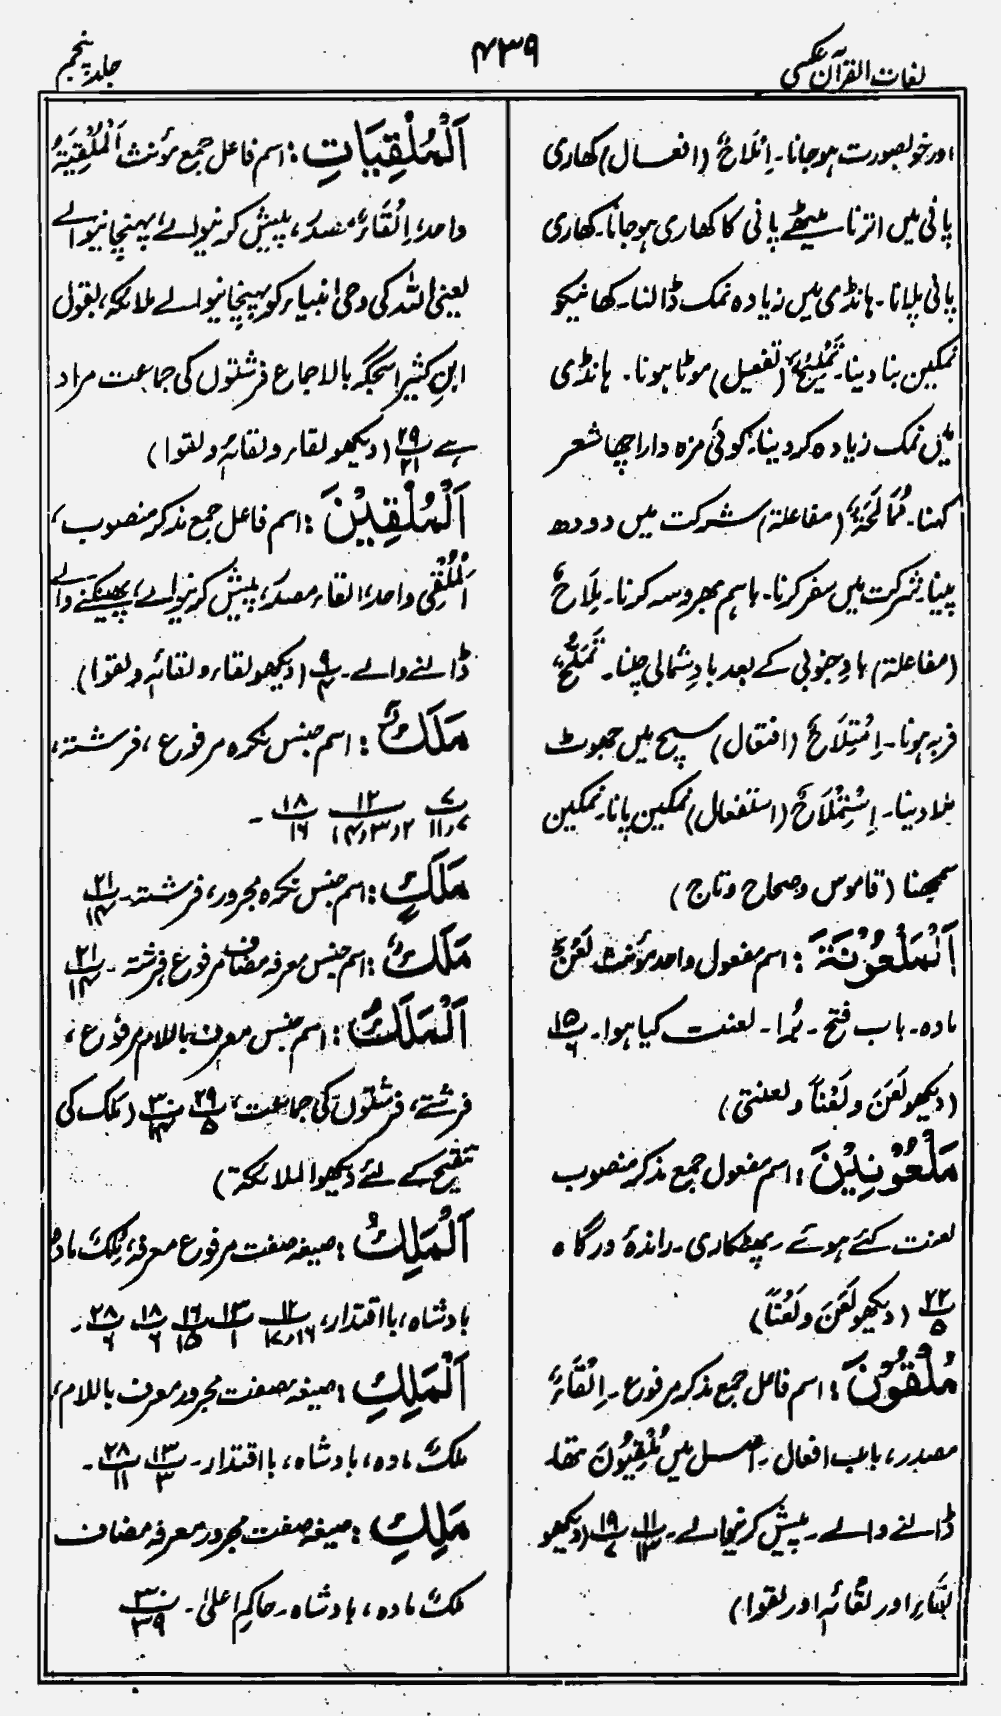 لغات القرآن عکسی
۴۳۹
جلد پنجم
اور خوبصورت ہوجانا۔ اِمْلَاحٌ (افعال) کھاری
پانی میں اترنا۔ میٹھے پانی کا کھاری ہوجانا۔ کھاری
پانی پلانا۔ ہانڈی میں زیادہ نمک ڈالنا۔ کھانیکو
نمکین بنا دینا۔ تَمْلِیْحٌ (تفعیل) موٹا ہونا۔ ہانڈی
میں نمک زیادہ کردینا۔ کوئی مزہ دار اچھا شعر
کہنا۔ مُمَالَحَۃٌ (مفاعلۃ) شرکت میں دودھ
پینا۔ شرکت میں سفر کرنا۔ باہم بھروسہ کرنا۔ مِلَاحٌ
(مفاعلۃ) بادِ جنوبی کے بعد بادِ شمالی چلنا۔ تَمَلُّحٌ
فربہ ہونا۔ اِمْتِلَاحٌ (افتعال) سچ میں جھوٹ
ملا دینا۔ اِسْتِمْلَاحٌ (استفعال) نمکین پانا۔ نمکین
سمجھنا (قاموس وصحاح وتاج)
اَلْمَلْعُوْنَۃَ : اسم مفعول واحد مؤنث لَعْنٌ
مادہ۔ باب فتح۔ بُرا۔ لعنت کیا ہوا۔ ۱۵/۶
(دیکھو لَعَنَ و لَعْنًا و لعنتی)
مَلْعُوْنِیْنَ : اسم مفعول جمع مذکر منصوب
لعنت کئے ہوئے۔ پھٹکاری۔ راندۂ درگاہ
۲۲/۵ (دیکھو لَعَنَ و لَعْنًا)
مُلْقُوْنَ : اسم فاعل جمع مذکر مرفوع۔ اِلْقَاءٌ
مصدر، باب افعال۔ اصل میں مُلْقِیُوْنَ تھا۔
ڈالنے والے۔ پیش کرنیوالے۔ ۱۱/۱۳ ۱۹/۷ (دیکھو
لقاء اور لقائہٖ اور لقوا)
اَلْمُلْقِیَاتِ : اسم فاعل جمع مؤنث اَلْمُلْقِیَۃُ
واحد، اِلْقَاءٌ مصدر، پیش کرنیوالے، پہنچانیوالے
یعنی اللہ کی وحی انبیاء کو پہنچانیوالے ملائکہ، بقول
ابن کثیر اسجگہ بالاجماع فرشتوں کی جماعت مراد
ہے ۲۹/۲۱ (دیکھو لقاء ولقائہٖ ولقوا)
اَلْمُلْقِیْنَ : اسم فاعل جمع مذکر منصوب،
اَلْمُلْقِی واحد، القاء مصدر، پیش کرنیوالے، پھینکنے والے
ڈالنے والے۔ ۹/۴ (دیکھو لقاء ولقائہٖ ولقوا)۔
مَلَکٌ : اسم جنس نکرہ مرفوع، فرشتہ،
۷/۱۱،۷ ۱۲/۲،۳،۱۴ ۱۸/۱۶ ۔
مَلَکٍ : اسم جنس نکرہ مجرور، فرشتہ۔ ۲۱/۱۴
مَلَکُ : اسم جنس معرفہ مضاف مرفوع فرشتہ۔ ۲۱/۱۴
اَلْمَلَکُ : اسم جنس معرف باللام مرفوع،
فرشتے، فرشتوں کی جماعت، ۲۹/۵ ۳۰/۱۴ (ملک کی
تنقیح کے لئے دیکھو الملائکۃ)
اَلْمَلِکُ : صیغہ صفت مرفوع معرفہ، مُلْکٌ مادہ
بادشاہ، بااقتدار، ۱۲/۱۶،۱۷ ۱۳/۱ ۱۶/۱۵ ۱۸/۶ ۲۸/۶ ۔
اَلْمَلِکِ : صیغہ صفت مجرور معرف باللام،
ملکٌ مادہ، بادشاہ، بااقتدار۔ ۱۳/۳ ۲۸/۱۱ ۔
مَلِکِ : صیغہ صفت مجرور معرفہ مضاف
ملکٌ مادہ، بادشاہ۔ حاکمِ اعلیٰ۔ ۳۰/۳۹